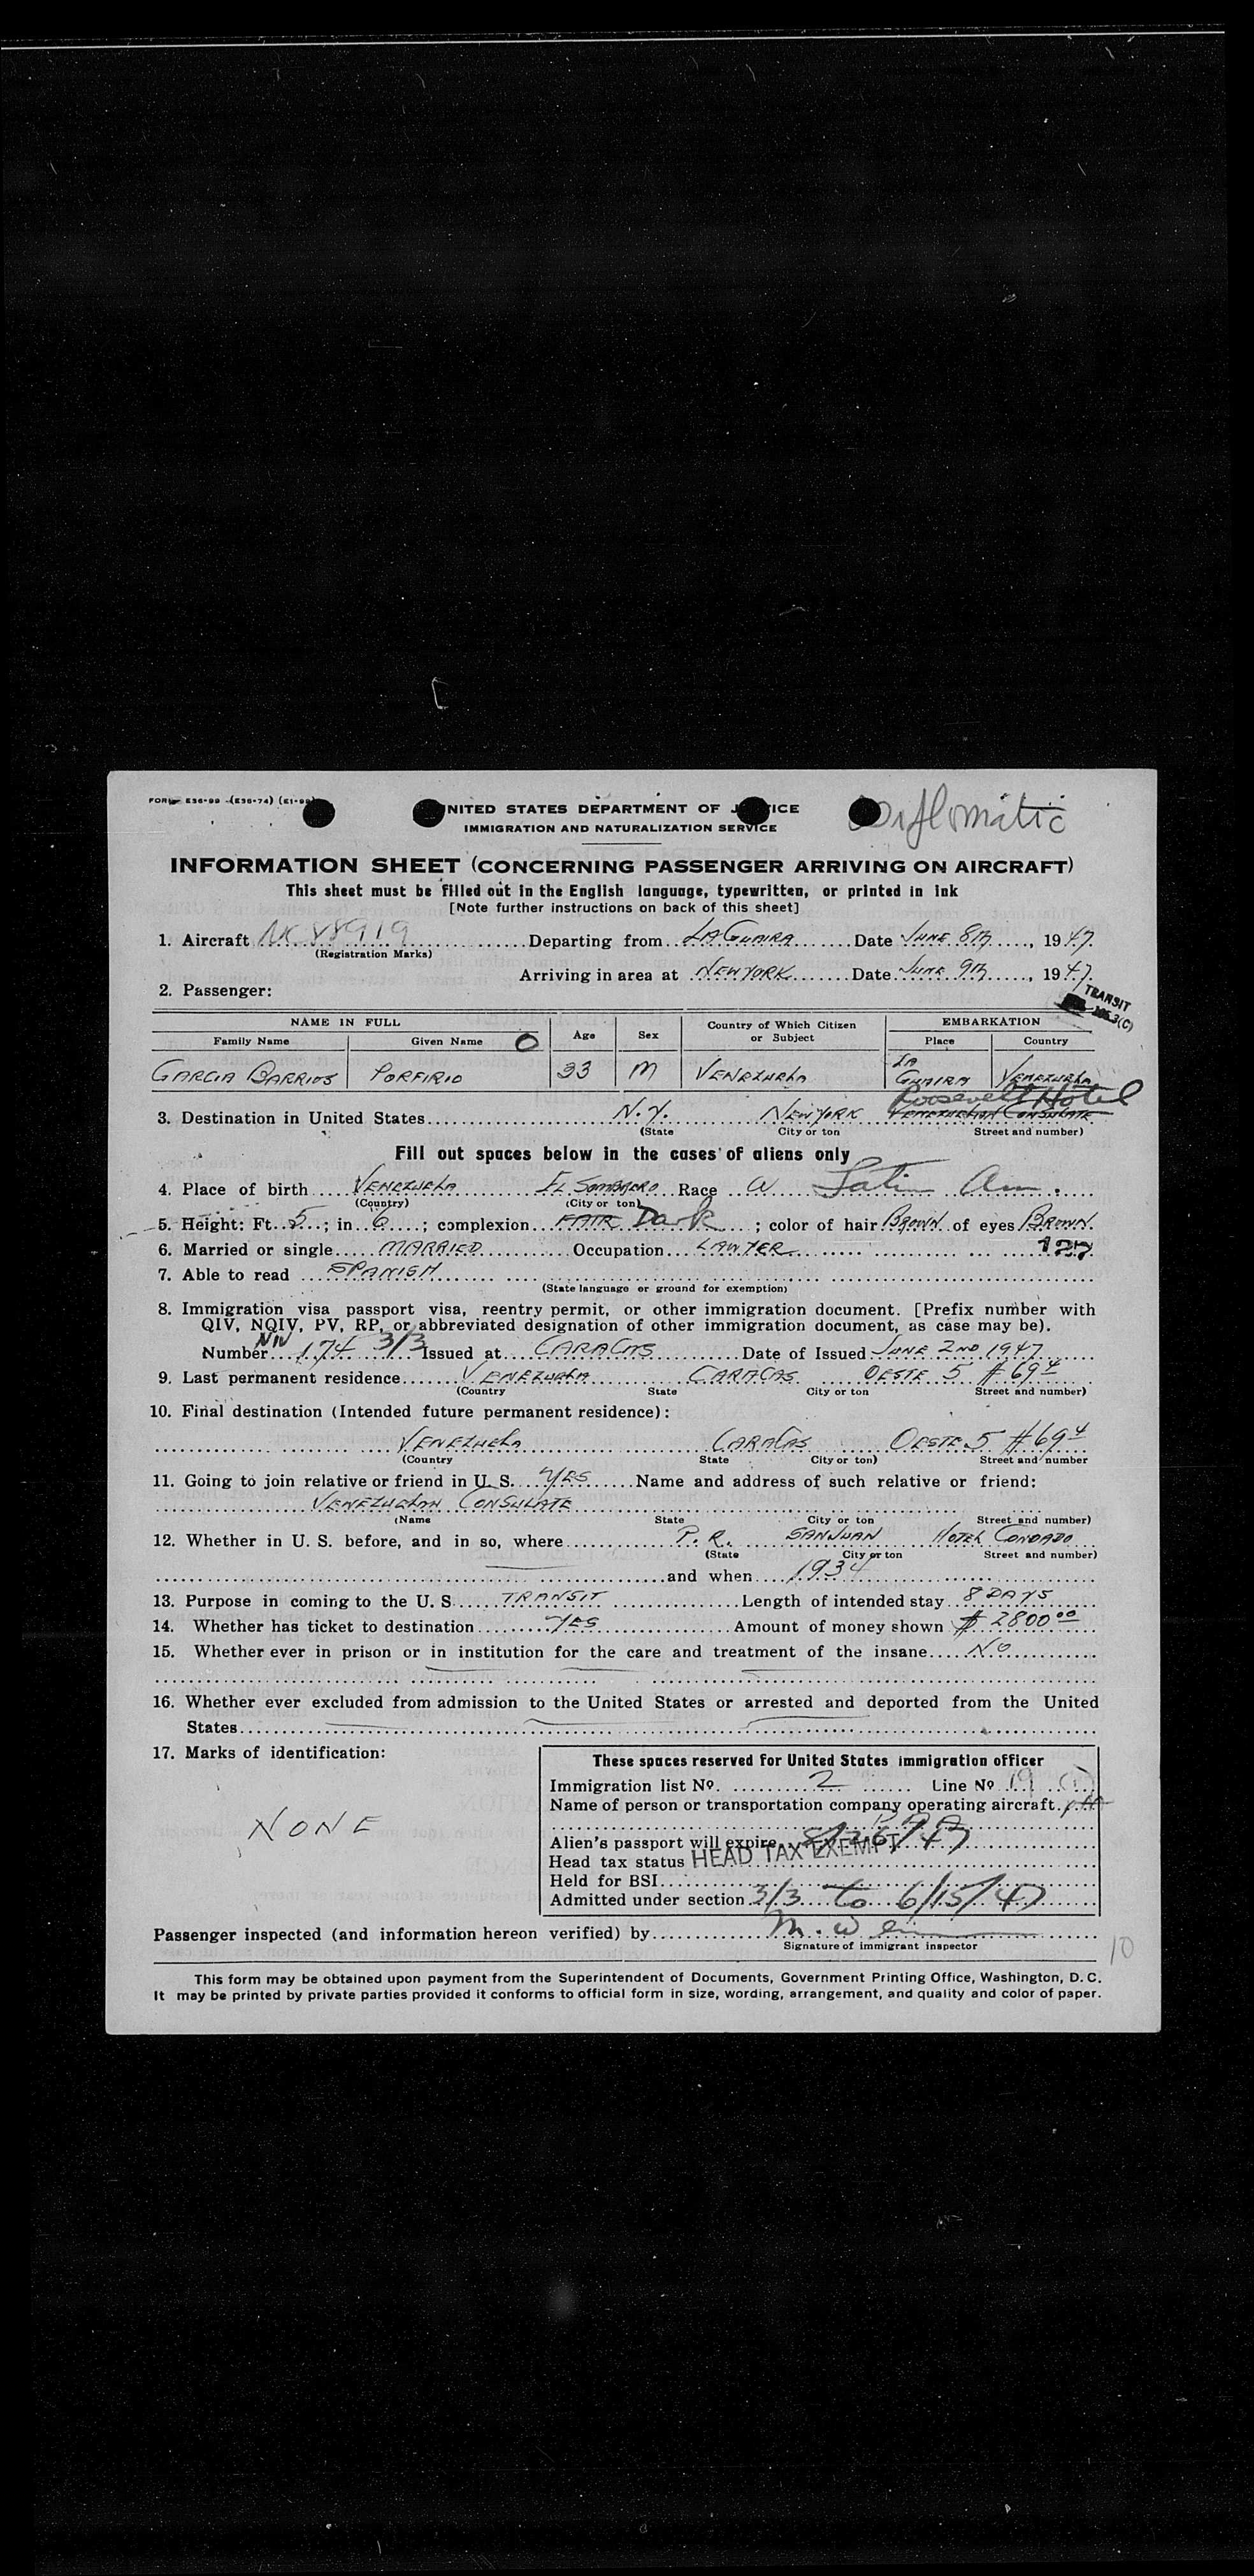 FORM E36-99 (E36-74) (E1-99)
UNITED STATES DEPARTMENT OF JUSTICE
Diplomatic
IMMIGRATION AND NATURALIZATION SERVICE
INFORMATION SHEET (CONCERNING PASSENGER ARRIVING ON AIRCRAFT)
This sheet must be filled out in the English language, typewritten, or printed in ink
[Note further instructions on back of this sheet]
1. Aircraft NC 88919 Departing from LA GUAIRA Date JUNE 8TH, 1947.
(Registration Marks)
Arriving in area at NEW YORK Date JUNE 9TH, 1947.
2. Passenger:
TRANSIT
NAME IN FULL Age Sex Country of Which Citizen or Subject EMBARKATION
Family Name Given Name O Place Country
GARCIA BARRIOS PORFIRIO 33 M VENEZUELA LA GUAIRA VENEZUELA
Roosevelt Hotel
3. Destination in United States N.Y. NEW YORK VENEZUELAN CONSULATE
(State City or ton Street and number)
Fill out spaces below in the cases of aliens only
4. Place of birth VENEZUELA EL SOMBRERO Race W Latin Am.
(Country) (City or ton)
5. Height: Ft. 5; in 6; complexion FAIR Dark; color of hair BROWN of eyes BROWN.
6. Married or single MARRIED Occupation LAWYER 127
7. Able to read SPANISH
(State language or ground for exemption)
8. Immigration visa passport visa, reentry permit, or other immigration document. [Prefix number with
QIV, NQIV, PV, RP, or abbreviated designation of other immigration document, as case may be).
Number NIV 174 3/3 Issued at CARACAS Date of Issued JUNE 2ND 1947
9. Last permanent residence VENEZUELA CARACAS OESTE 5 #69-4
(Country State City or ton Street and number)
10. Final destination (Intended future permanent residence):
VENEZUELA CARACAS OESTE 5 #69-4
(Country State City or ton) Street and number
11. Going to join relative or friend in U. S. YES Name and address of such relative or friend:
VENEZUELAN CONSULATE
(Name State City or ton Street and number)
12. Whether in U. S. before, and in so, where P. R. SAN JUAN HOTEL CONDADO
(State City or ton Street and number)
and when 1934
13. Purpose in coming to the U. S TRANSIT Length of intended stay 8 DAYS
14. Whether has ticket to destination YES Amount of money shown $ 2800 00
15. Whether ever in prison or in institution for the care and treatment of the insane NO
16. Whether ever excluded from admission to the United States or arrested and deported from the United
States
17. Marks of identification:
NONE
These spaces reserved for United States immigration officer
Immigration list No. 2 Line No 19 (1)
Name of person or transportation company operating aircraft.
Alien's passport will expire
Head tax status HEAD TAX EXEMPT
Held for BSI
Admitted under section 3/3 to 6/15/47
Passenger inspected (and information hereon verified) by
Signature of immigrant inspector
10
This form may be obtained upon payment from the Superintendent of Documents, Government Printing Office, Washington, D. C.
It may be printed by private parties provided it conforms to official form in size, wording, arrangement, and quality and color of paper.